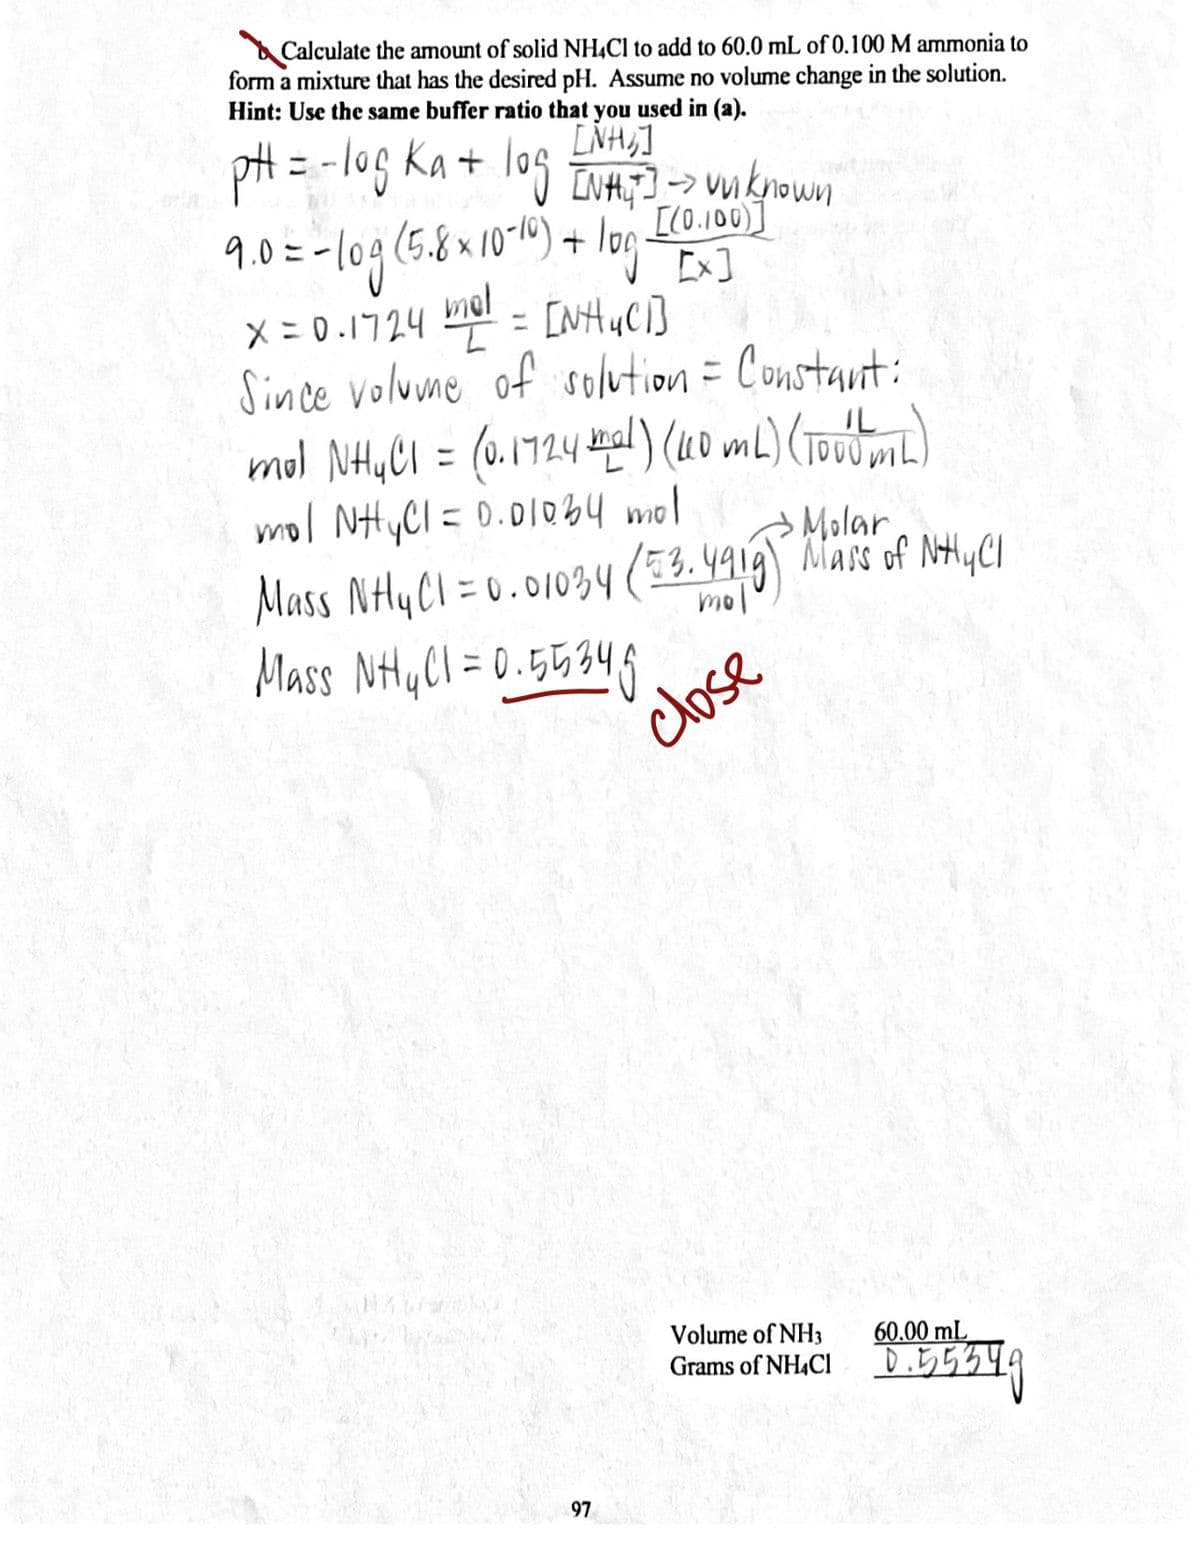 b. Calculate the amount of solid NH₄Cl to add to 60.0 mL of 0.100 M ammonia to
form a mixture that has the desired pH. Assume no volume change in the solution.
Hint: Use the same buffer ratio that you used in (a).
pH = -log Ka + log [NH₃]/[NH₄⁺] → unknown
9.0 = -log (5.8 x 10⁻¹⁰) + log [(0.100)]/[x]
x = 0.1724 mol/L = [NH₄Cl]
Since volume of solution = Constant:
mol NH₄Cl = (0.1724 mol/L) (60 mL) (1L/1000mL)
mol NH₄Cl = 0.01034 mol
Mass NH₄Cl = 0.01034 (53.491g/mol) → Molar Mass of NH₄Cl
Mass NH₄Cl = 0.5534g
close
Volume of NH₃ 60.00 mL
Grams of NH₄Cl 0.5534g
97